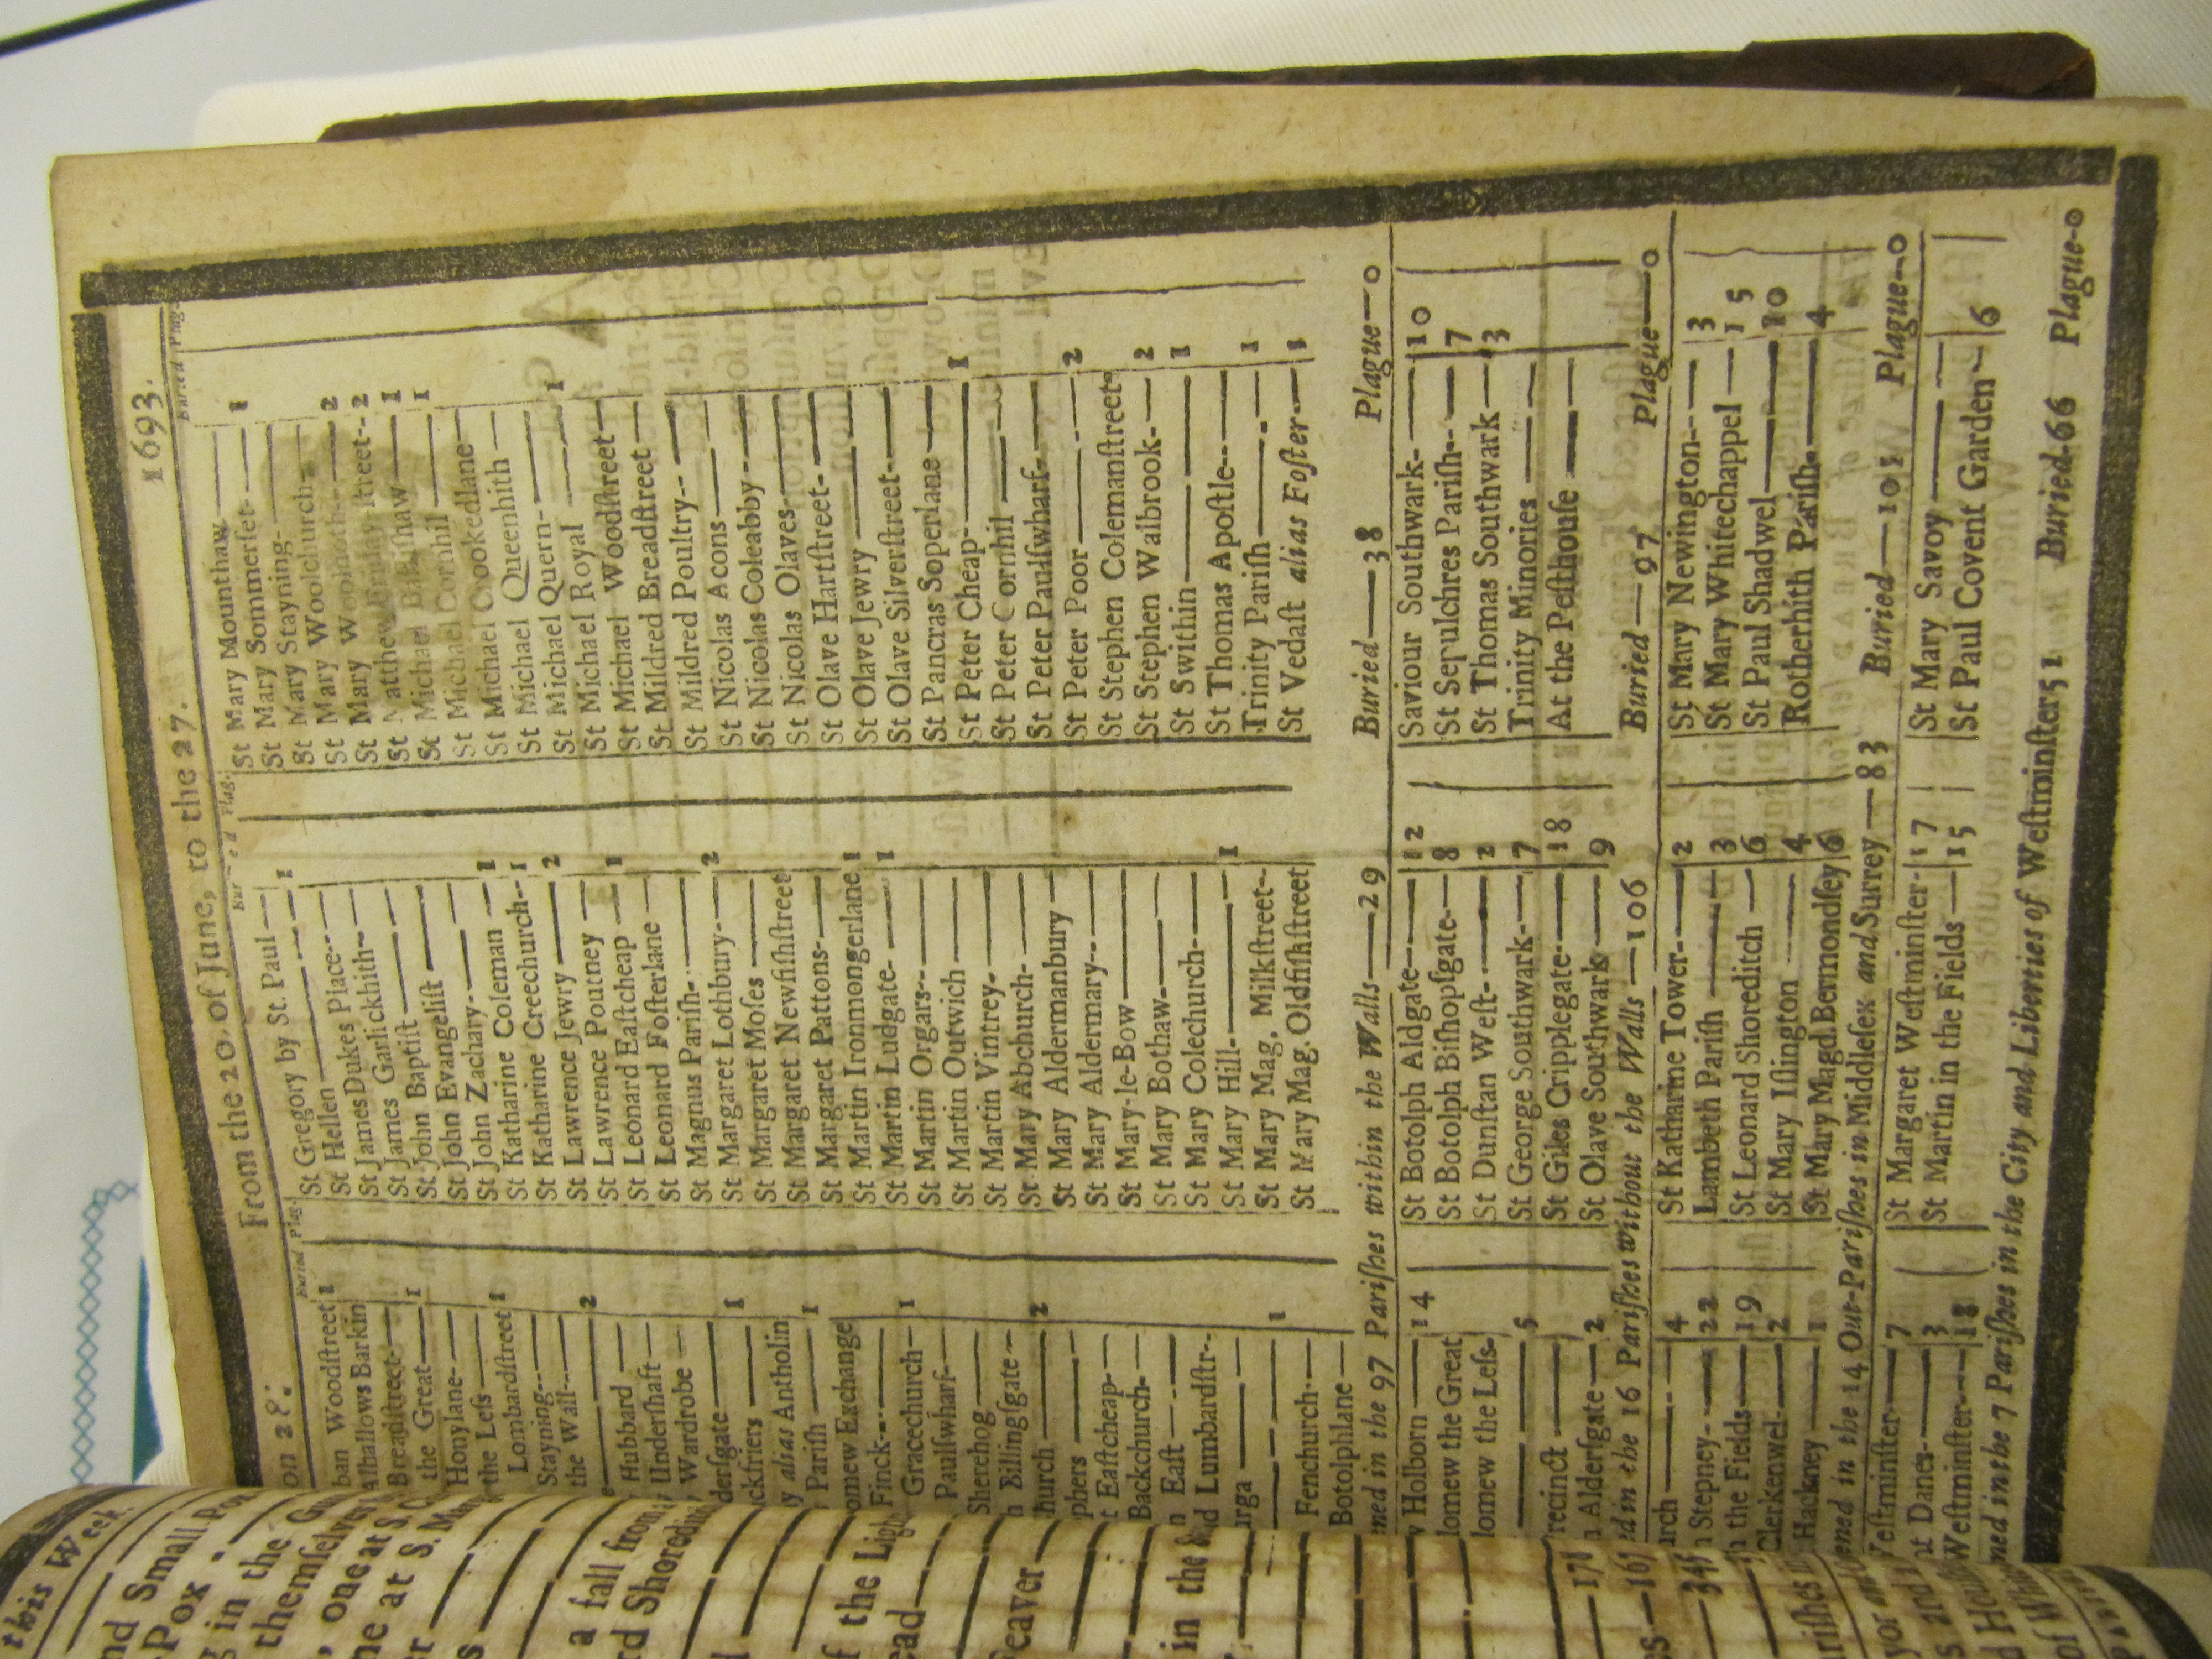 on 28. From the 20. of June, to the 27. 1693.
Buried Plag.
ban Woodſtreet 1
Alhallows Barkin
Breadſtreet
the Great 1
Honylane
the Leſs
Lombardſtreet 1
Stayning
the Wall
2
Hubbard
Underſhaft
Wardrobe
derſgate 1
ckfriers
y alias Antholin
Pariſh 1
omew Exchange
Finck
Gracechurch 1
Paulſwharf
Sherehog
n Billingſgate
hurch 2
phers
t Eaſtcheap
Backchurch
n Eaſt
d Lumbardſtr
urga
1
Fenchurch
Botolphlane
Buried Plag.
St Gregory by St. Paul 1
St Hellen
St James Dukes Place
St James Garlickhith
St John Baptiſt
St John Evangeliſt
St John Zachary
St Katharine Coleman 1
St Katharine Creechurch 1
St Lawrence Jewry 2
St Lawrence Poutney
St Leonard Eaſtcheap 1
St Leonard Foſterlane
St Magnus Pariſh
St Margaret Lothbury 2
St Margaret Moſes
St Margaret Newfiſhſtreet
St Margaret Pattons
St Martin Ironmongerlane 1
St Martin Ludgate 1
St Martin Orgars
St Martin Outwich
St Martin Vintrey
St Mary Abchurch
St Mary Aldermanbury
St Mary Aldermary
St Mary-le-Bow
St Mary Bothaw
St Mary Colechurch
St Mary Hill 1
St Mary Mag. Milkſtreet
St Mary Mag. Oldfiſhſtreet
Buried Plag.
St Mary Mounthaw
St Mary Sommerſet 1
St Mary Stayning
St Mary Woolchurch
St Mary Woolnoth 2
St Matthew Friday ſtreet 2
St Michael Baſſiſhaw 1
St Michael Cornhil 1
St Michael Crookedlane
St Michael Queenhith
St Michael Quern
St Michael Royal 1
St Michael Woodſtreet
St Mildred Breadſtreet
St Mildred Poultry
St Nicolas Acons
St Nicolas Coleabby
St Nicolas Olaves
St Olave Hartſtreet
St Olave Jewry
St Olave Silverſtreet
St Pancras Soperlane
St Peter Cheap 1
St Peter Cornhil
St Peter Paulſwharf
St Peter Poor 2
St Stephen Colemanſtreet
St Stephen Walbrook 2
St Swithin 1
St Thomas Apoſtle
Trinity Pariſh 1
St Vedaſt alias Foſter 1
ned in the 97 Pariſhes within the Walls—29 Buried—38 Plague—0
w Holborn 14
lomew the Great
lomew the Leſs
5
recinct
Alderſgate 2
St Botolph Aldgate 12
St Botolph Biſhopſgate 8
St Dunſtan Weſt 2
St George Southwark 7
St Giles Cripplegate 18
St Olave Southwark 9
Saviour Southwark 10
St Sepulchres Pariſh 7
St Thomas Southwark 3
Trinity Minories
At the Peſthouſe
d in the 16 Pariſhes without the Walls—106 Buried—97 Plague—0
urch 4
n Stepney 22
the Fields 19
Clerkenwel 2
Hackney 1
St Katharine Tower 2
Lambeth Pariſh 3
St Leonard Shoreditch 6
St Mary Iſlington 4
St Mary Magd. Bermondſey 6
St Mary Newington 3
St Mary Whitechappel 15
St Paul Shadwel 10
Rotherhith Pariſh 4
ened in the 14 Out-Pariſhes in Middleſex and Surrey—83 Buried—101 Plague—0
Veſtminſter 7
nt Danes 3
Weſtminſter 18
St Margaret Weſtminſter 17
St Martin in the Fields 15
St Mary Savoy
St Paul Covent Garden 6
ned in the 7 Pariſhes in the City and Liberties of Weſtminſter 51 Buried 66 Plague—0
this Week
nd Small Pox
Pox
in the
themſelves
, one at S.
ne at S.
a fall from
rd Shoreditch
f the Ligh
ead
Feaver
in the
171